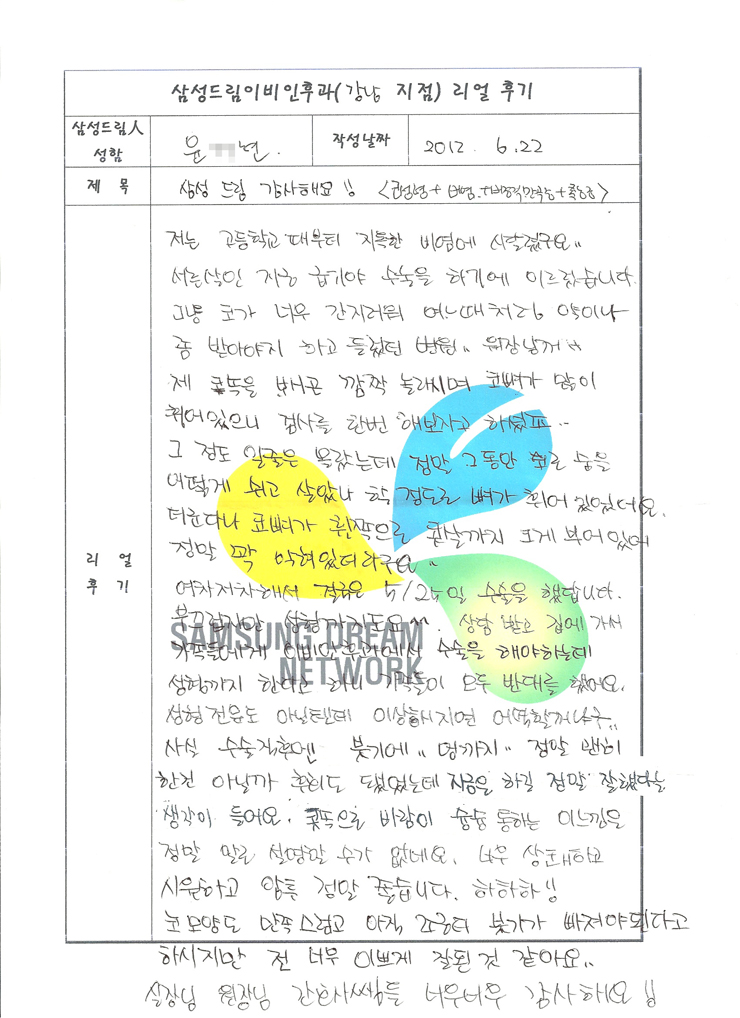 삼성드림이비인후과(강남 지점) 리얼 후기
삼성드림人 성함
윤 년.
작성날짜
2012. 6.22
제 목
삼성 드림 감사해요!! < + 비염.+ + >
리 얼 후 기
저는 고등학교때부터 지독한 비염에 시달렸구요..
서른살인 지금 급기야 수술을 하기에 이르렀습니다.
그냥 코가 너무 간지러워 여느때처럼 약이나
좀 받아야지 하고 들렀던 병원.. 원장님께서
제 콧속을 보시곤 깜짝 놀라시며 코뼈가 많이
휘어있으니 검사를 한번 해보자고 하셨고..
그 정도 일줄은 몰랐는데 정말 그동안 숨을
어떻게 쉬고 살았나 할 정도로 뼈가 휘어 있었어요.
더군다나 코뼈가 왼쪽으로 콧살까지 크게 부어있어
정말 꽉 막혀있더라구요..
여차저차해서 결국은 5/25일 수술을 했답니다.
부끄럽지만 성형까지도요^^. 상담 받고 집에 가서
가족들에게 이비인후과에서 수술을 해야하는데
성형까지 한다고 하니 가족들이 모두 반대를 했어요.
성형전문도 아닐텐데 이상해지면 어떡할꺼냐구..
사실 수술직후엔 붓기에.. 멍까지.. 정말 괜히
한건 아닐까 후회도 됐었는데 지금은 하길 정말 잘했다는
생각이 들어요. 콧속으로 바람이 슝슝 통하는 이느낌은
정말 말로 설명할 수가 없네요. 너무 상쾌하고
시원하고 암튼 정말 좋습니다. 하하하!!
코모양도 만족스럽고 아직 조금더 붓기가 빠져야된다고
하시지만 전 너무 이쁘게 잘된것 같아요..
실장님 원장님 간호사쌤들 너무너무 감사해요!!
SAMSUNG DREAM
NETWORK